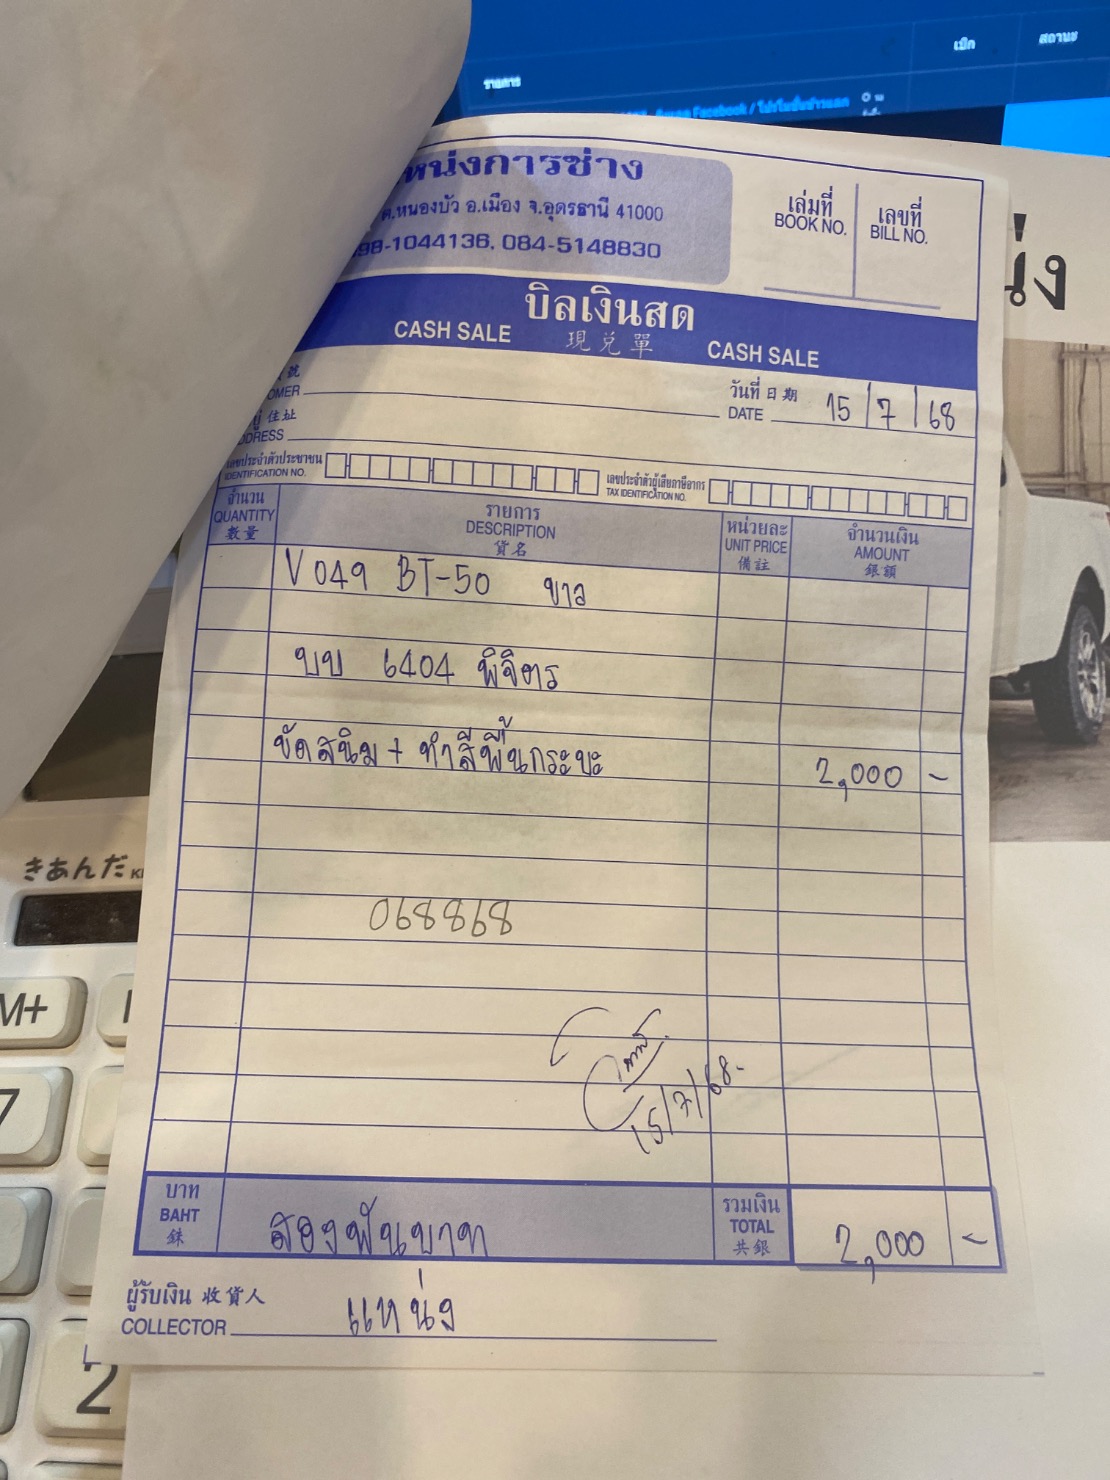 รายการ
เบิก
สถานะ
Facebook / โปรโมชั่นข่าวแสด
หน่งการช่าง
ต.หนองบัว อ.เมือง จ.อุดรธานี 41000
98-1044136, 084-5148830
เล่มที่
BOOK NO.
เลขที่
BILL NO.
น่ง
บิลเงินสด
CASH SALE 現兑單 CASH SALE
號
OMER
วันที่ 日期
DATE 15/7/68
ยู่ 住址
DDRESS
เลขประจำตัวประชาชน
IDENTIFICATION NO.
เลขประจำตัวผู้เสียภาษีอากร
TAX IDENTIFICATION NO.
จำนวน
QUANTITY
數量
รายการ
DESCRIPTION
貨名
หน่วยละ
UNIT PRICE
備註
จำนวนเงิน
AMOUNT
銀額
V049 BT-50 ขาว
บบ 6404 พิจิตร
ขัดสนิม + ทำสีพื้นกระบะ 2,000 -
きあんだ
068868
M+
7
15/7/68.
บาท
BAHT
銖
สองพันบาท
รวมเงิน
TOTAL
共銀
2,000 -
ผู้รับเงิน 收貨人
COLLECTOR แหน่ง
2